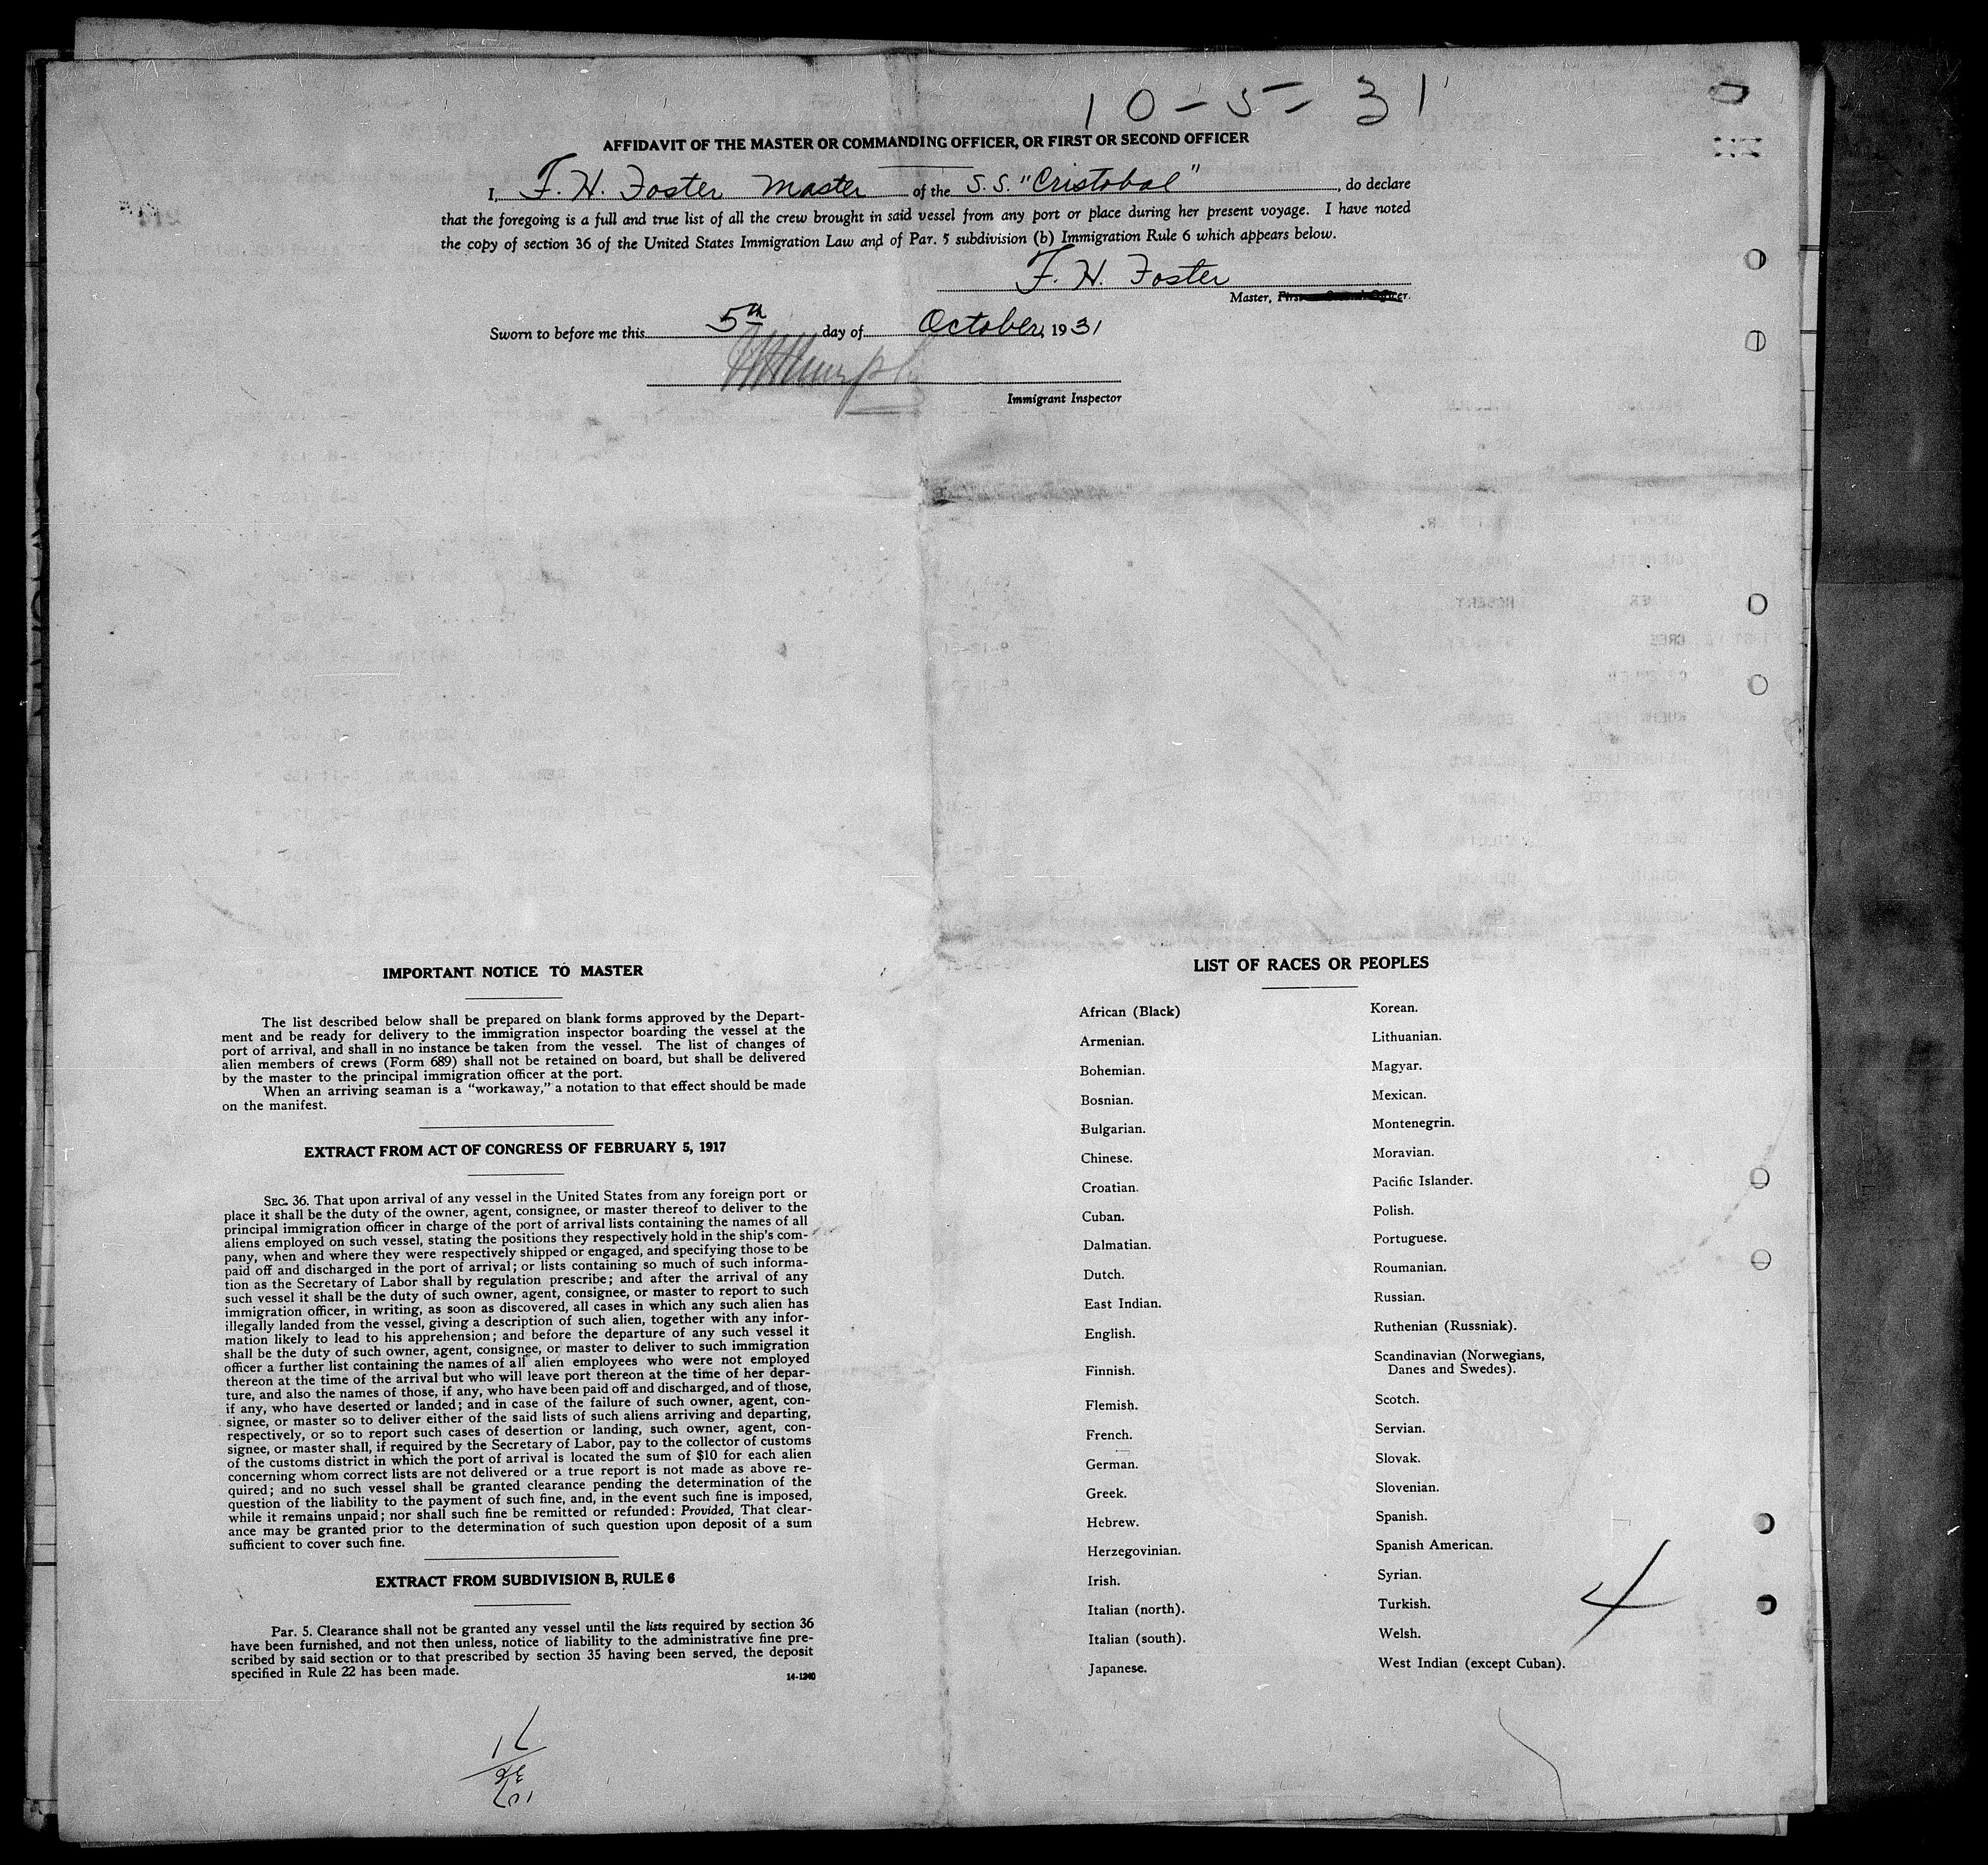 10-5-31
AFFIDAVIT OF THE MASTER OR COMMANDING OFFICER, OR FIRST OR SECOND OFFICER
I, F. H. Foster Master of the S.S. "Cristobal", do declare
that the foregoing is a full and true list of all the crew brought in said vessel from any port or place during her present voyage. I have noted
the copy of section 36 of the United States Immigration Law and of Par. 5 subdivision (b) Immigration Rule 6 which appears below.
F. H. Foster
Master, First or Second Officer.
Sworn to before me this 5th day of October, 1931
Immigrant Inspector
IMPORTANT NOTICE TO MASTER
The list described below shall be prepared on blank forms approved by the Depart-
ment and be ready for delivery to the immigration inspector boarding the vessel at the
port of arrival, and shall in no instance be taken from the vessel. The list of changes of
alien members of crews (Form 689) shall not be retained on board, but shall be delivered
by the master to the principal immigration officer at the port.
When an arriving seaman is a "workaway," a notation to that effect should be made
on the manifest.
EXTRACT FROM ACT OF CONGRESS OF FEBRUARY 5, 1917
SEC. 36. That upon arrival of any vessel in the United States from any foreign port or
place it shall be the duty of the owner, agent, consignee, or master thereof to deliver to the
principal immigration officer in charge of the port of arrival lists containing the names of all
aliens employed on such vessel, stating the positions they respectively hold in the ship's com-
pany, when and where they were respectively shipped or engaged, and specifying those to be
paid off and discharged in the port of arrival; or lists containing so much of such informa-
tion as the Secretary of Labor shall by regulation prescribe; and after the arrival of any
such vessel it shall be the duty of such owner, agent, consignee, or master to report to such
immigration officer, in writing, as soon as discovered, all cases in which any such alien has
illegally landed from the vessel, giving a description of such alien, together with any infor-
mation likely to lead to his apprehension; and before the departure of any such vessel it
shall be the duty of such owner, agent, consignee, or master to deliver to such immigration
officer a further list containing the names of all alien employees who were not employed
thereon at the time of the arrival but who will leave port thereon at the time of her depar-
ture, and also the names of those, if any, who have been paid off and discharged, and of those,
if any, who have deserted or landed; and in case of the failure of such owner, agent, con-
signee, or master so to deliver either of the said lists of such aliens arriving and departing,
respectively, or so to report such cases of desertion or landing, such owner, agent, con-
signee, or master shall, if required by the Secretary of Labor, pay to the collector of customs
of the customs district in which the port of arrival is located the sum of $10 for each alien
concerning whom correct lists are not delivered or a true report is not made as above re-
quired; and no such vessel shall be granted clearance pending the determination of the
question of the liability to the payment of such fine, and, in the event such fine is imposed,
while it remains unpaid; nor shall such fine be remitted or refunded: Provided, That clear-
ance may be granted prior to the determination of such question upon deposit of a sum
sufficient to cover such fine.
EXTRACT FROM SUBDIVISION B, RULE 6
Par. 5. Clearance shall not be granted any vessel until the lists required by section 36
have been furnished, and not then unless, notice of liability to the administrative fine pre-
scribed by said section or to that prescribed by section 35 having been served, the deposit
specified in Rule 22 has been made.
14-1240
LIST OF RACES OR PEOPLES
African (Black)
Armenian.
Bohemian.
Bosnian.
Bulgarian.
Chinese.
Croatian.
Cuban.
Dalmatian.
Dutch.
East Indian.
English.
Finnish.
Flemish.
French.
German.
Greek.
Hebrew.
Herzegovinian.
Irish.
Italian (north).
Italian (south).
Japanese.
Korean.
Lithuanian.
Magyar.
Mexican.
Montenegrin.
Moravian.
Pacific Islander.
Polish.
Portuguese.
Roumanian.
Russian.
Ruthenian (Russniak).
Scandinavian (Norwegians,
Danes and Swedes).
Scotch.
Servian.
Slovak.
Slovenian.
Spanish.
Spanish American.
Syrian.
Turkish.
Welsh.
West Indian (except Cuban).
4